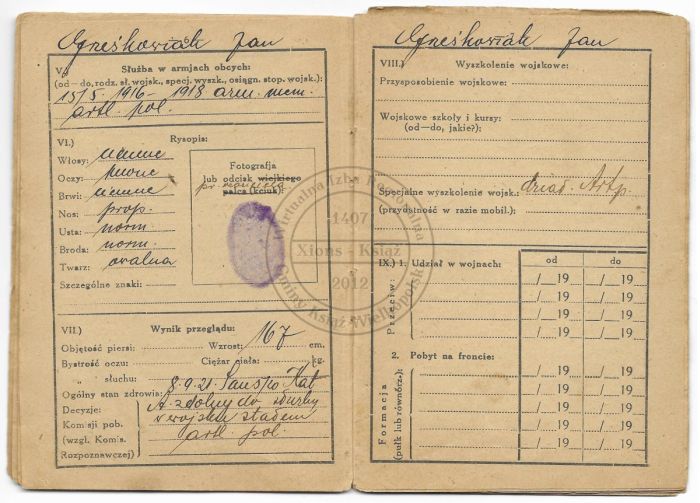 Grześkowiak Jan
V.) Służba w armjach obcych:
(od—do, rodz. sł. wojsk., specj. wyszk., osiągn. stop. wojsk.):
15/5. 1916 - 1918 arm. niem.
artl. pol.
VI.) Rysopis:
Włosy: ciemne
Oczy: piwne
Brwi: ciemne
Nos: prop.
Usta: norm.
Broda: norm.
Twarz: owalna
Szczególne znaki:
Fotografja
lub odcisk wiejkiego
palca (kciuk):
VII.) Wynik przeglądu:
Objętość piersi: Wzrost: 167 cm.
Bystrość oczu: Ciężar ciała: kg.
słuchu:
Ogólny stan zdrowia: 8.9.21. Kat
Decyzje: A. zdolny do służby
Komisji pob. w wojsku stałem
(wzgl. Komis. artl. pol.
Rozpoznawczej)
Grześkowiak Jan
VIII.) Wyszkolenie wojskowe:
Przysposobienie wojskowe:
Wojskowe szkoły i kursy:
(od—do, jakie?):
Specjalne wyszkolenie wojsk.: dział. Art p.
(przydatność w razie mobil.)
IX.) 1. Udział w wojnach: od do
Przeciw:
/ 19 / 19
/ 19 / 19
/ 19 / 19
/ 19 / 19
2. Pobyt na froncie:
Formacja
(pułk lub równórz.):
/ 19 / 19
/ 19 / 19
/ 19 / 19
/ 19 / 19
/ 19 / 19
Wirtualna Izba Regionalna
1407
Xions - Książ
2012
Gminy Książ Wielkopolski